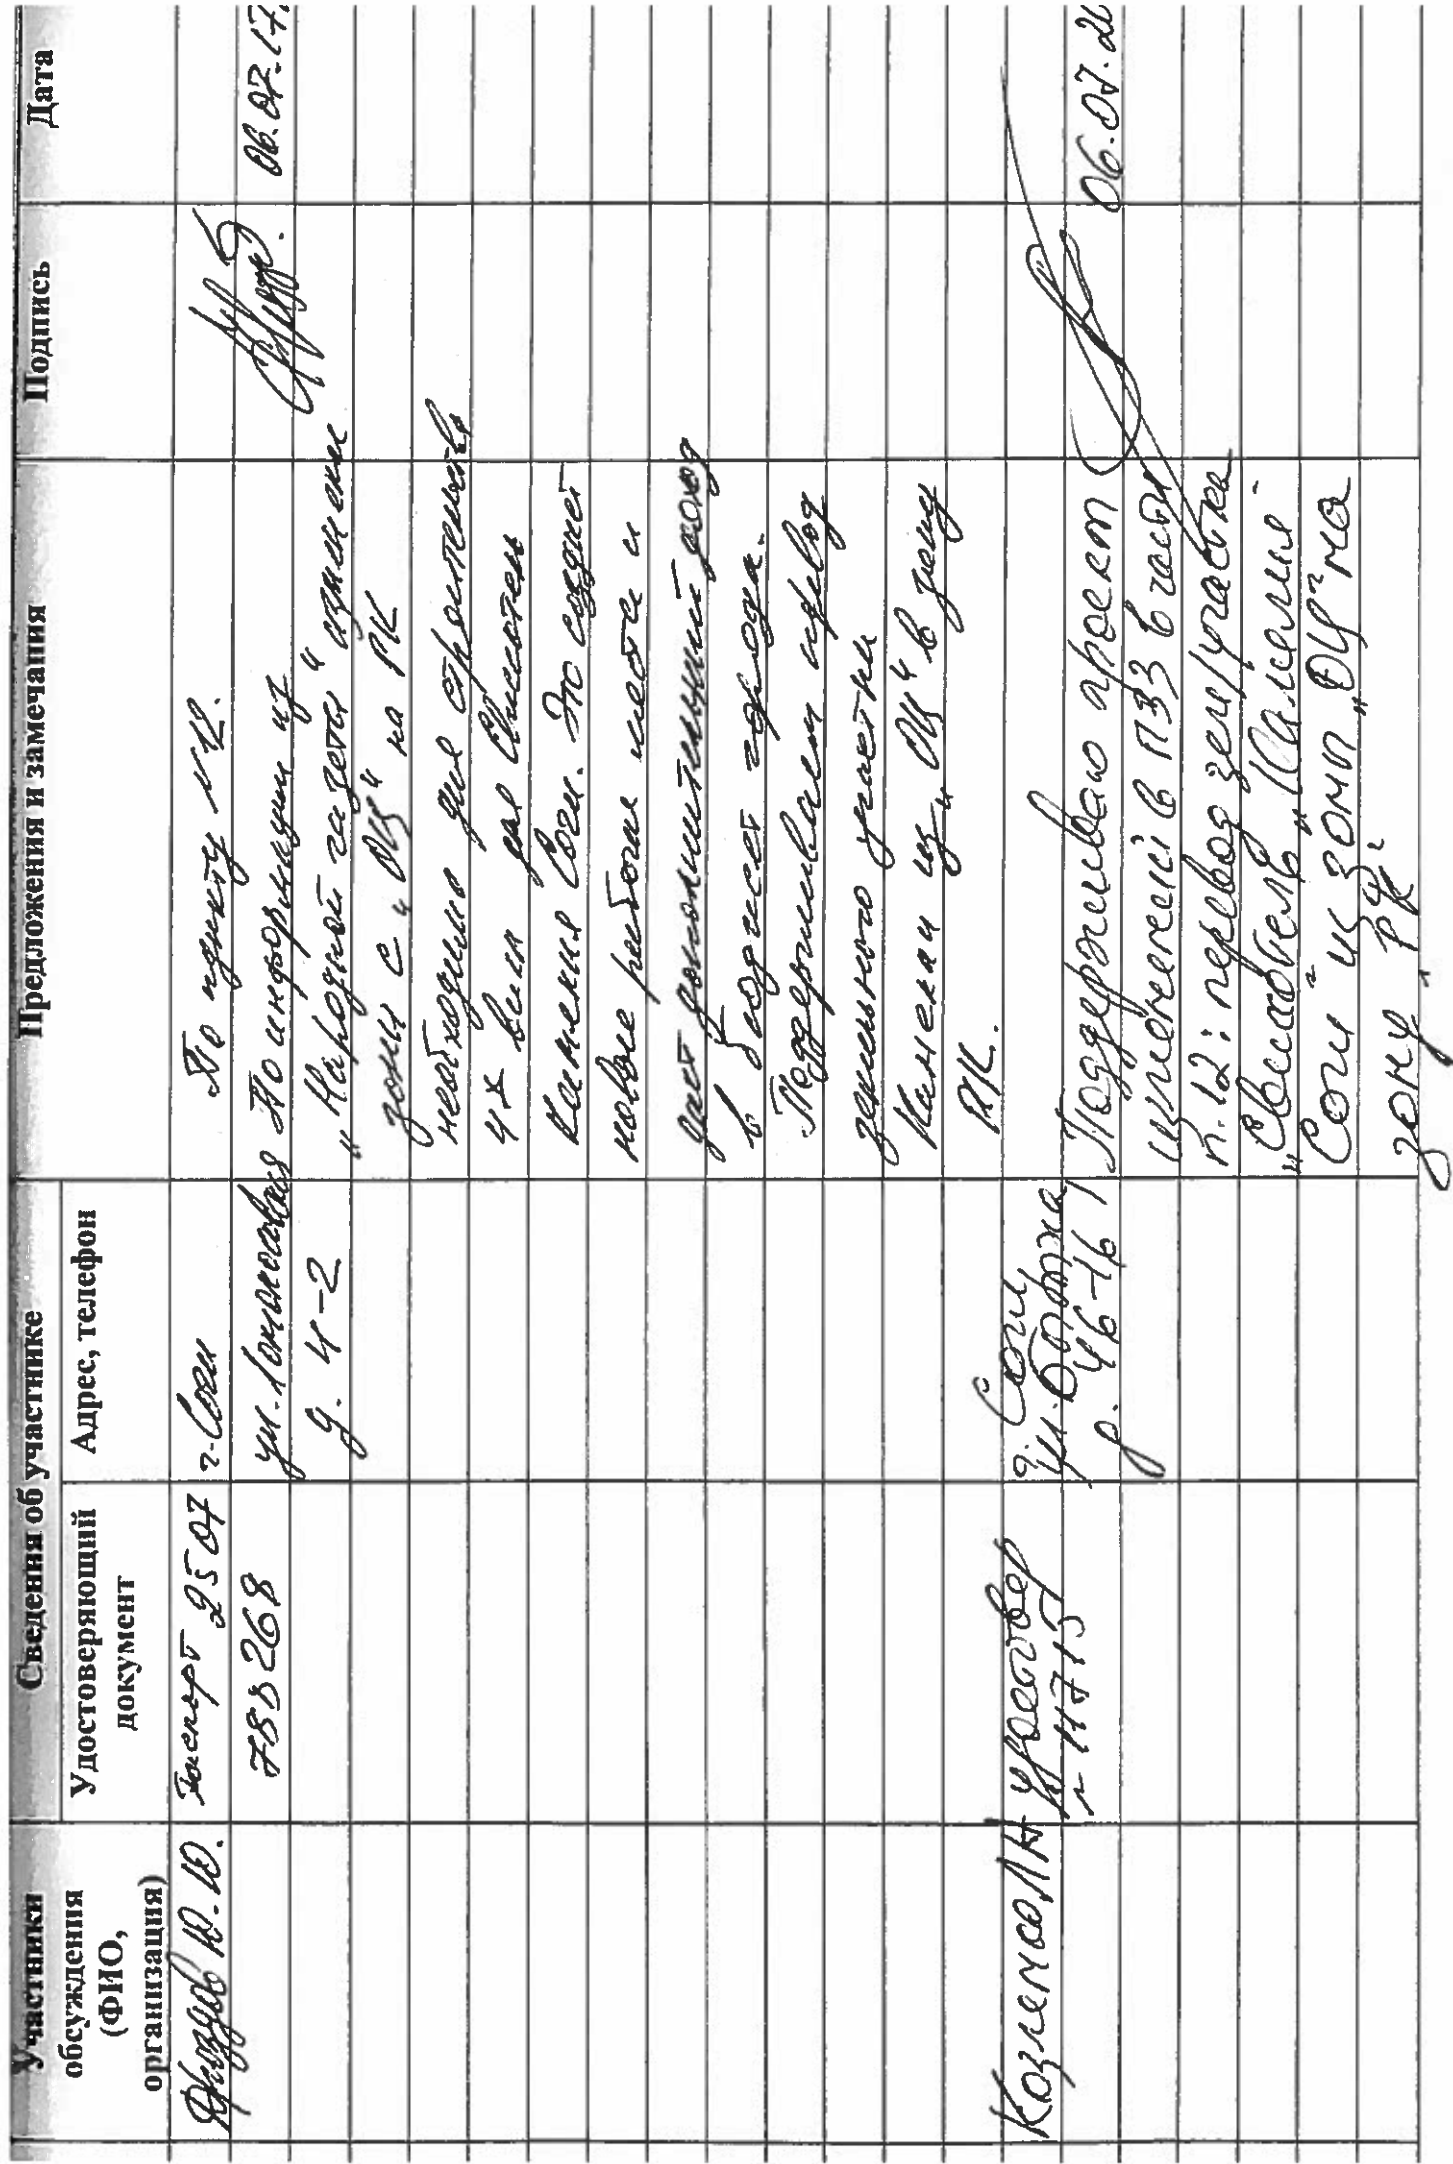 Участники обсуждения (ФИО, организация)
Сведения об участнике
Удостоверяющий документ
Адрес, телефон
Предложения и замечания
Подпись
Дата
Дроздов Ю.Ю.
Паспорт 2507
788268
г. Сочи
ул. Ломоносова
д. 4-2
По пункту 12.
По информации из
„Народной газеты" изменение
зоны с „ОЦ" на РК
необходимо для строительства
ж/к вилл для Свиссотель
Камелия Сочи. Это создает
новые рабочие места и
дает дополнительный доход
в бюджет города.
Поддерживаем перевод
земельного участка
Камелии из „ОЦ" в зону
РК.
06.07.17.
Козленко ЛН
удостовер
11715
г. Сочи
ул.
д. 46-16
Поддерживаю проект
изменений в ПЗЗ в части
п. 12: перевод зем/участка
„Свисотель „Камелия
Сочи" из зоны „ОЦ" на
зону „РК"
06.07.20